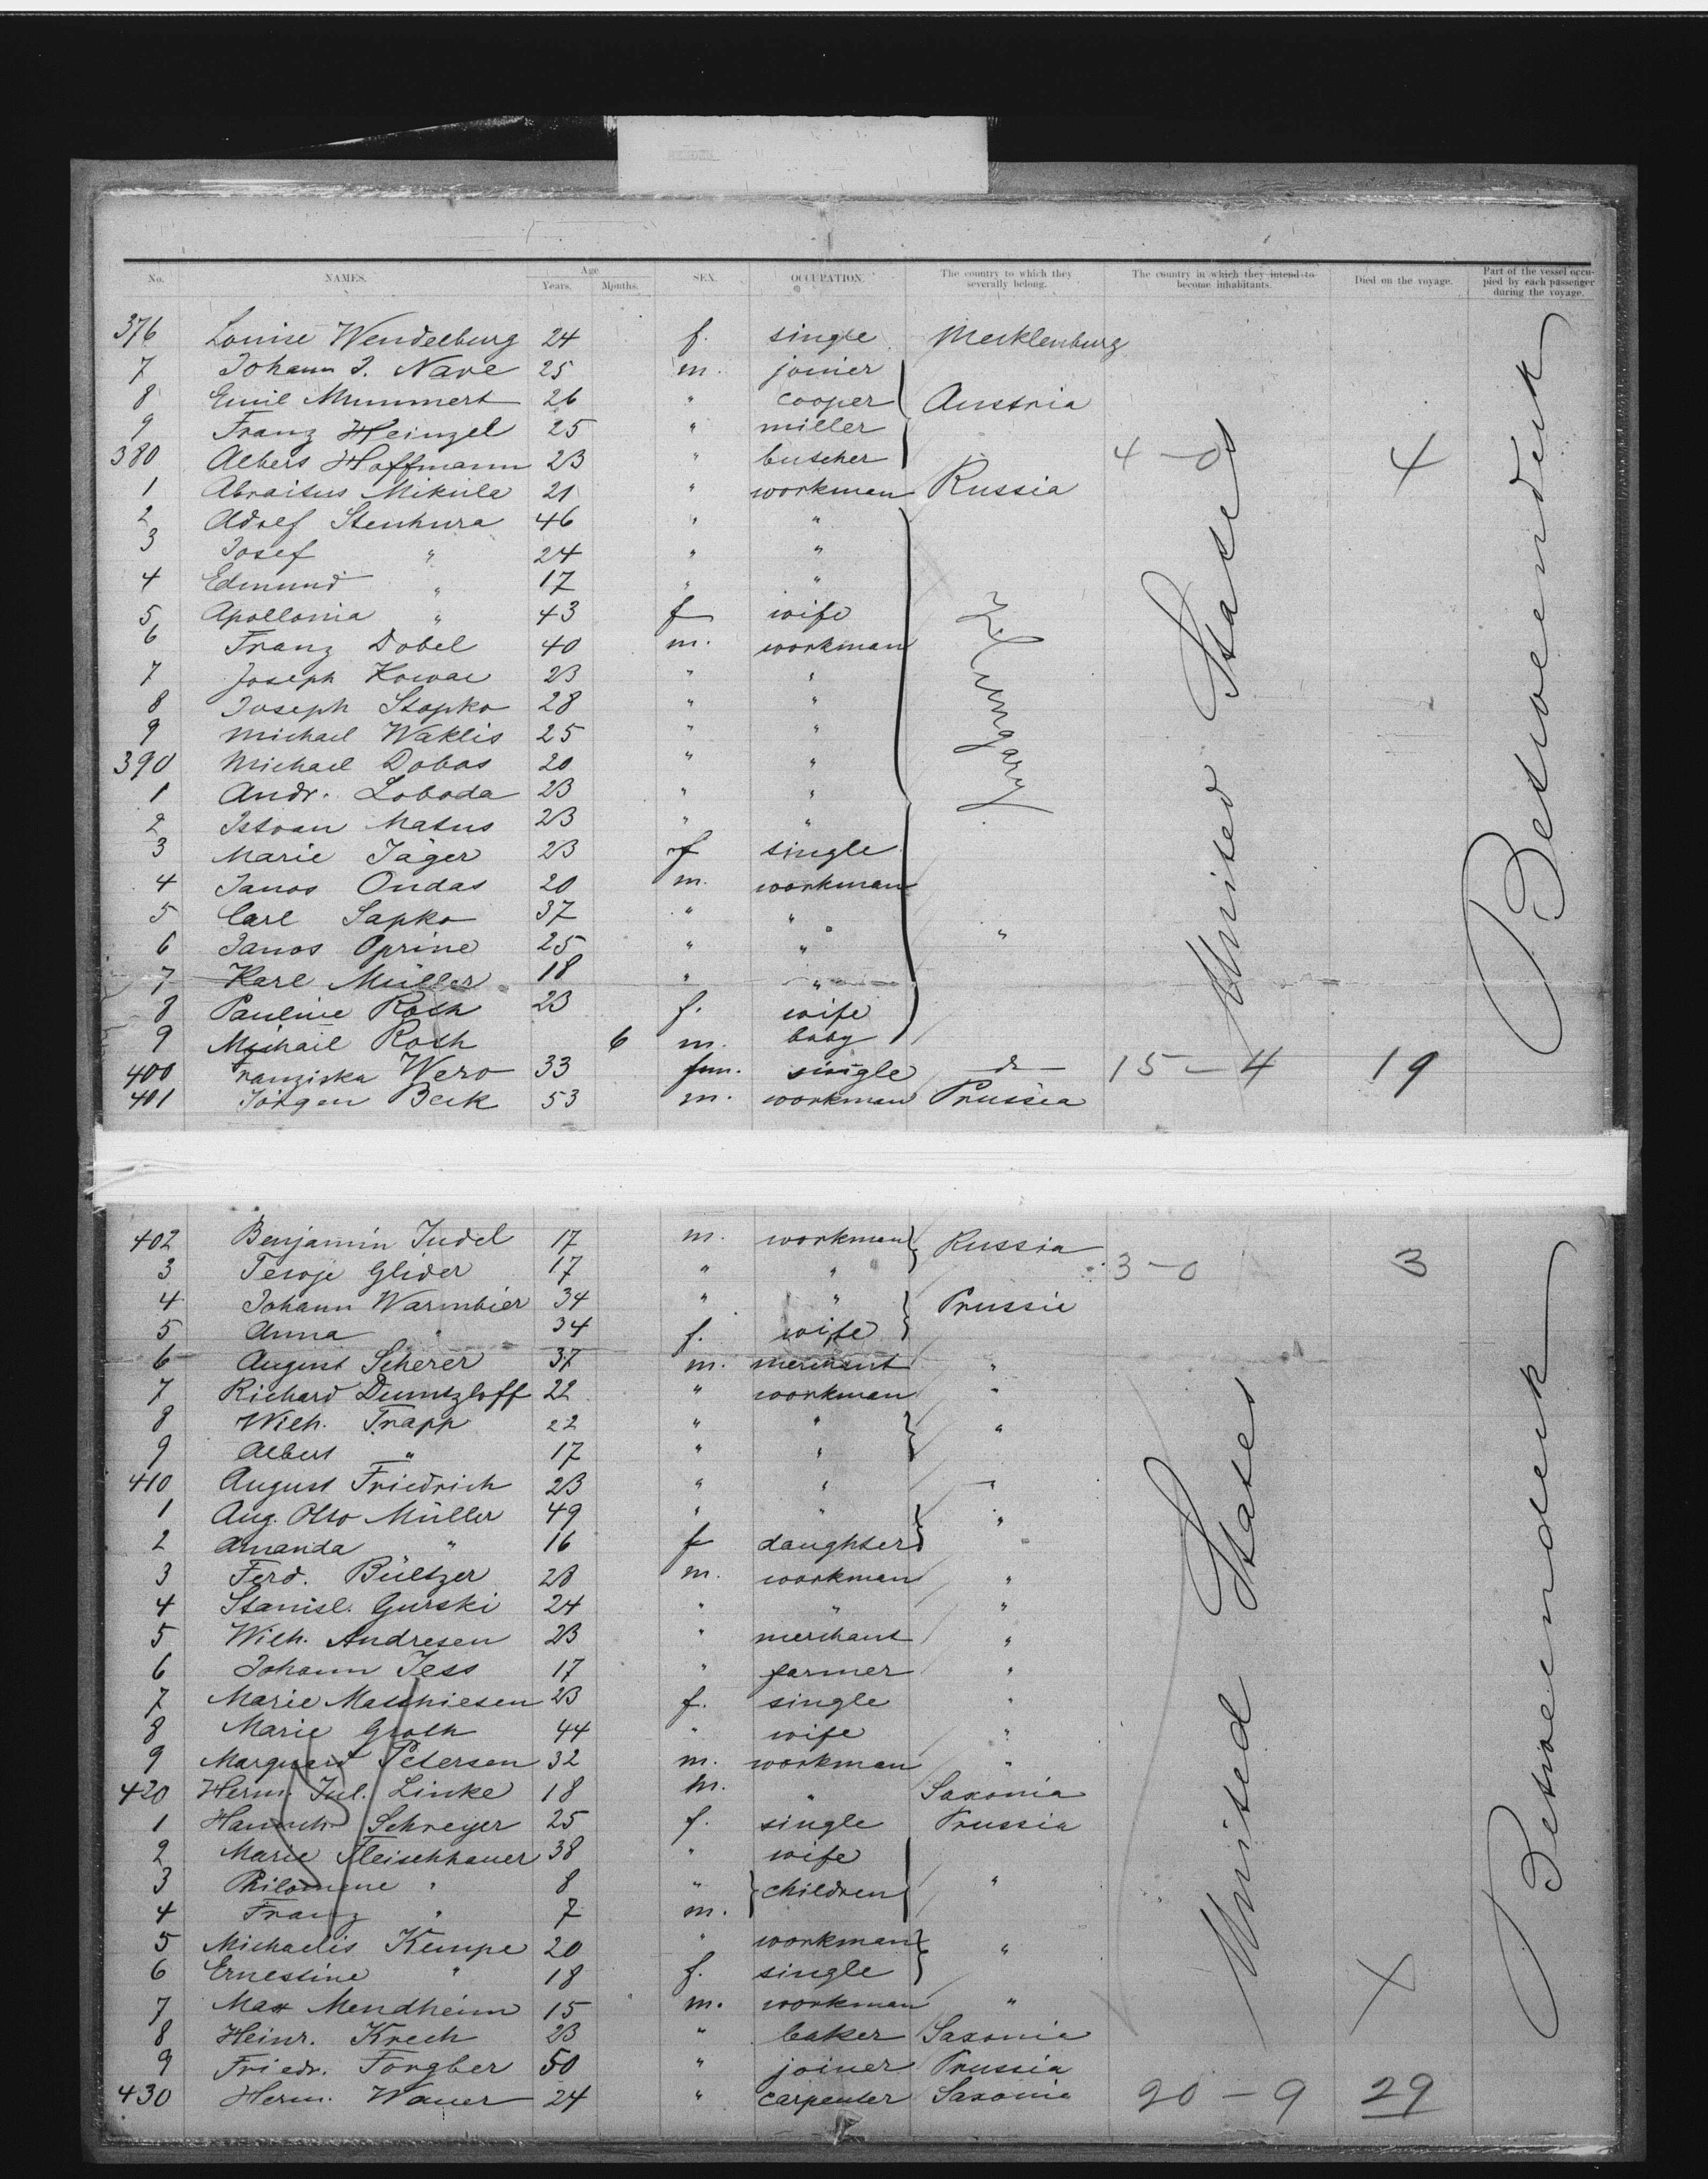 No. NAMES. Age Years. Months. SEX. OCCUPATION. The country to which they severally belong. The country in which they intend to become inhabitants. Died on the voyage. Part of the vessel occupied by each passenger during the voyage.
376 Louise Wendelburg 24 f. single Mecklenburg
7 Johann J. Nave 25 m. joiner
8 Emil Mummert 26 " cooper Austria
9 Franz Heinzel 25 " miller
380 Albers Hoffmann 23 " butcher 4 - 0 4
1 Abraitus Mikula 21 " workman Russia
2 Adolf Stenhura 46 " "
3 Josef " 24 " "
4 Edmund " 17 " "
5 Apollonia " 43 f wife
6 Franz Dobel 40 m. workman
7 Joseph Kowac 23 " "
8 Joseph Stopko 28 " "
9 Michael Waklis 25 " "
390 Michael Dobos 20 " "
1 Andr. Loboda 23 " "
Hungary
2 Istvan Matus 23 " "
3 Marie Jäger 23 f single
4 Janos Ondas 20 m. workman
5 Carl Sapko 37 " "
6 Janos Oprine 25 " " "
7 Karl Müller 18 " "
8 Pauline Roth 23 f. wife
9 Michail Roth 6 m. baby
400 Franziska Wero 33 fem. single do 15 - 4 19
401 Jörgen Beck 53 m. workman Prussia
United States
Betweendeck
402 Benjamin Judel 17 m. workman Russia
3 Glider 17 " " 3 - 0 3
4 Johann Warmbier 34 " " Prussia
5 Anna " 34 f. wife
6 August Scherer 37 m. merchant "
7 Richard Dumtzloff 22 " workman "
8 Wilh. Trapp 22 " " "
9 Albert " 17 " "
410 August Friedrich 23 " " "
1 Aug. Otto Müller 49 " " "
2 Amanda " 16 f daughter "
3 Ferd. Bültzer 28 m. workman "
4 Stanisl. Gurski 24 " " "
5 Wilh. Andresen 23 " merchant "
6 Johann Jess 17 " farmer "
7 Marie Matthiesen 23 f. single "
8 Marie Groth 44 " wife "
9 Marquard Petersen 32 m. workman "
420 Herm. Jul. Linke 18 m. " Saxonia
1 Schreyer 25 f. single Prussia
2 Marie Fleischhauer 38 " wife
3 Philomene " 8 " children "
4 Franz " 7 m.
5 Michaelis Kempe 20 " workman "
6 Ernestine " 18 f. single
7 Max Mendheim 15 m. workman " X
8 Heinr. Krech 23 " baker Saxonia
9 Friedr. Forgber 50 " joiner Prussia
430 Herm. Wauer 24 " carpenter Saxonia 20 - 9 29
United States
Betweendeck